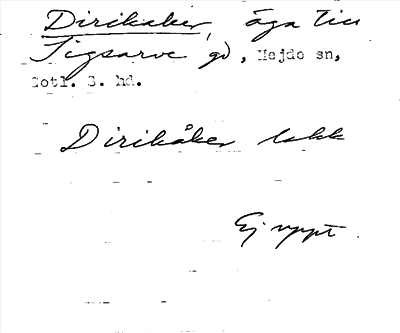 Dirikaker, äga till
Tigsarve gd, Hejde sn,
Gotl. S. hd.
Dirikåker
Ej uppt.